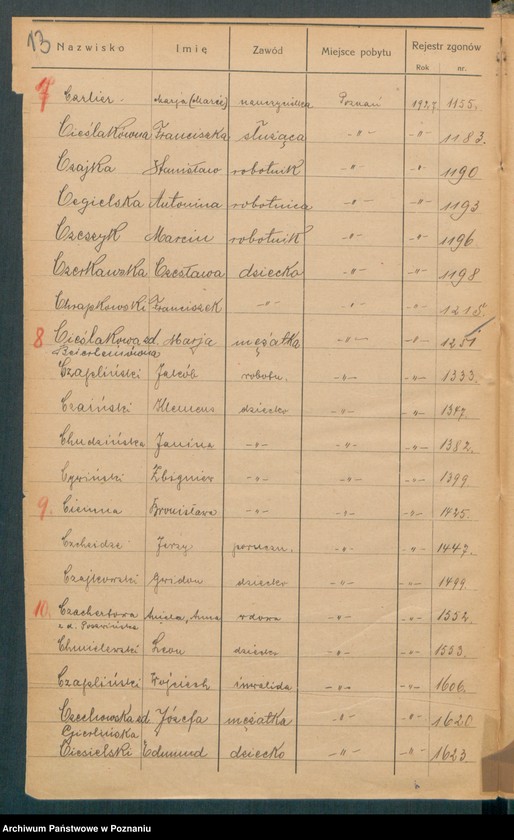 13
Nazwisko Imię Zawód Miejsce pobytu Rejestr zgonów
Rok nr.
7 Carlier. Marja (Marie) nauczycielka Poznań 1927 1155.
Cieślakówna Franciszka służąca -"- -"- 1183.
Czajka Stanisław robotnik -"- -"- 1190
Cegielska Antonina robotnica -"- -"- 1193
Czeszyk Marcin robotnik -"- -"- 1196.
Czerkawska Czesława dziecko -"- -"- 1198
Chrapkowski Franciszek -"- -"- -"- 1215.
8 Cieślakowa zd. Marja mężatka -"- -"- 1251
Czapliński Jakób robotn. -"- -"- 1333.
Czaiński Klemens dziecko -"- -"- 1347.
Chudzińska Janina -"- -"- -"- 1382.
Cywiński Zbigniew -"- -"- -"- 1399
9. Ciemna Bronisława -"- -"- -"- 1425.
Czcheidze Jerzy -"- -"- 1447.
Czajkowski dziecko -"- -"- 1499.
10. Czachertowa Aniela, Anna wdowa -"- -"- 1552.
z d.
Chmielewski Leon dziecko -"- -"- 1553.
Czapliński Wojciech inwalida -"- -"- 1606.
Czechowska zd. Józefa mężatka -"- -"- 1620
Ciesielski Edmund dziecko -"- -"- 1623.
Archiwum Państwowe w Poznaniu